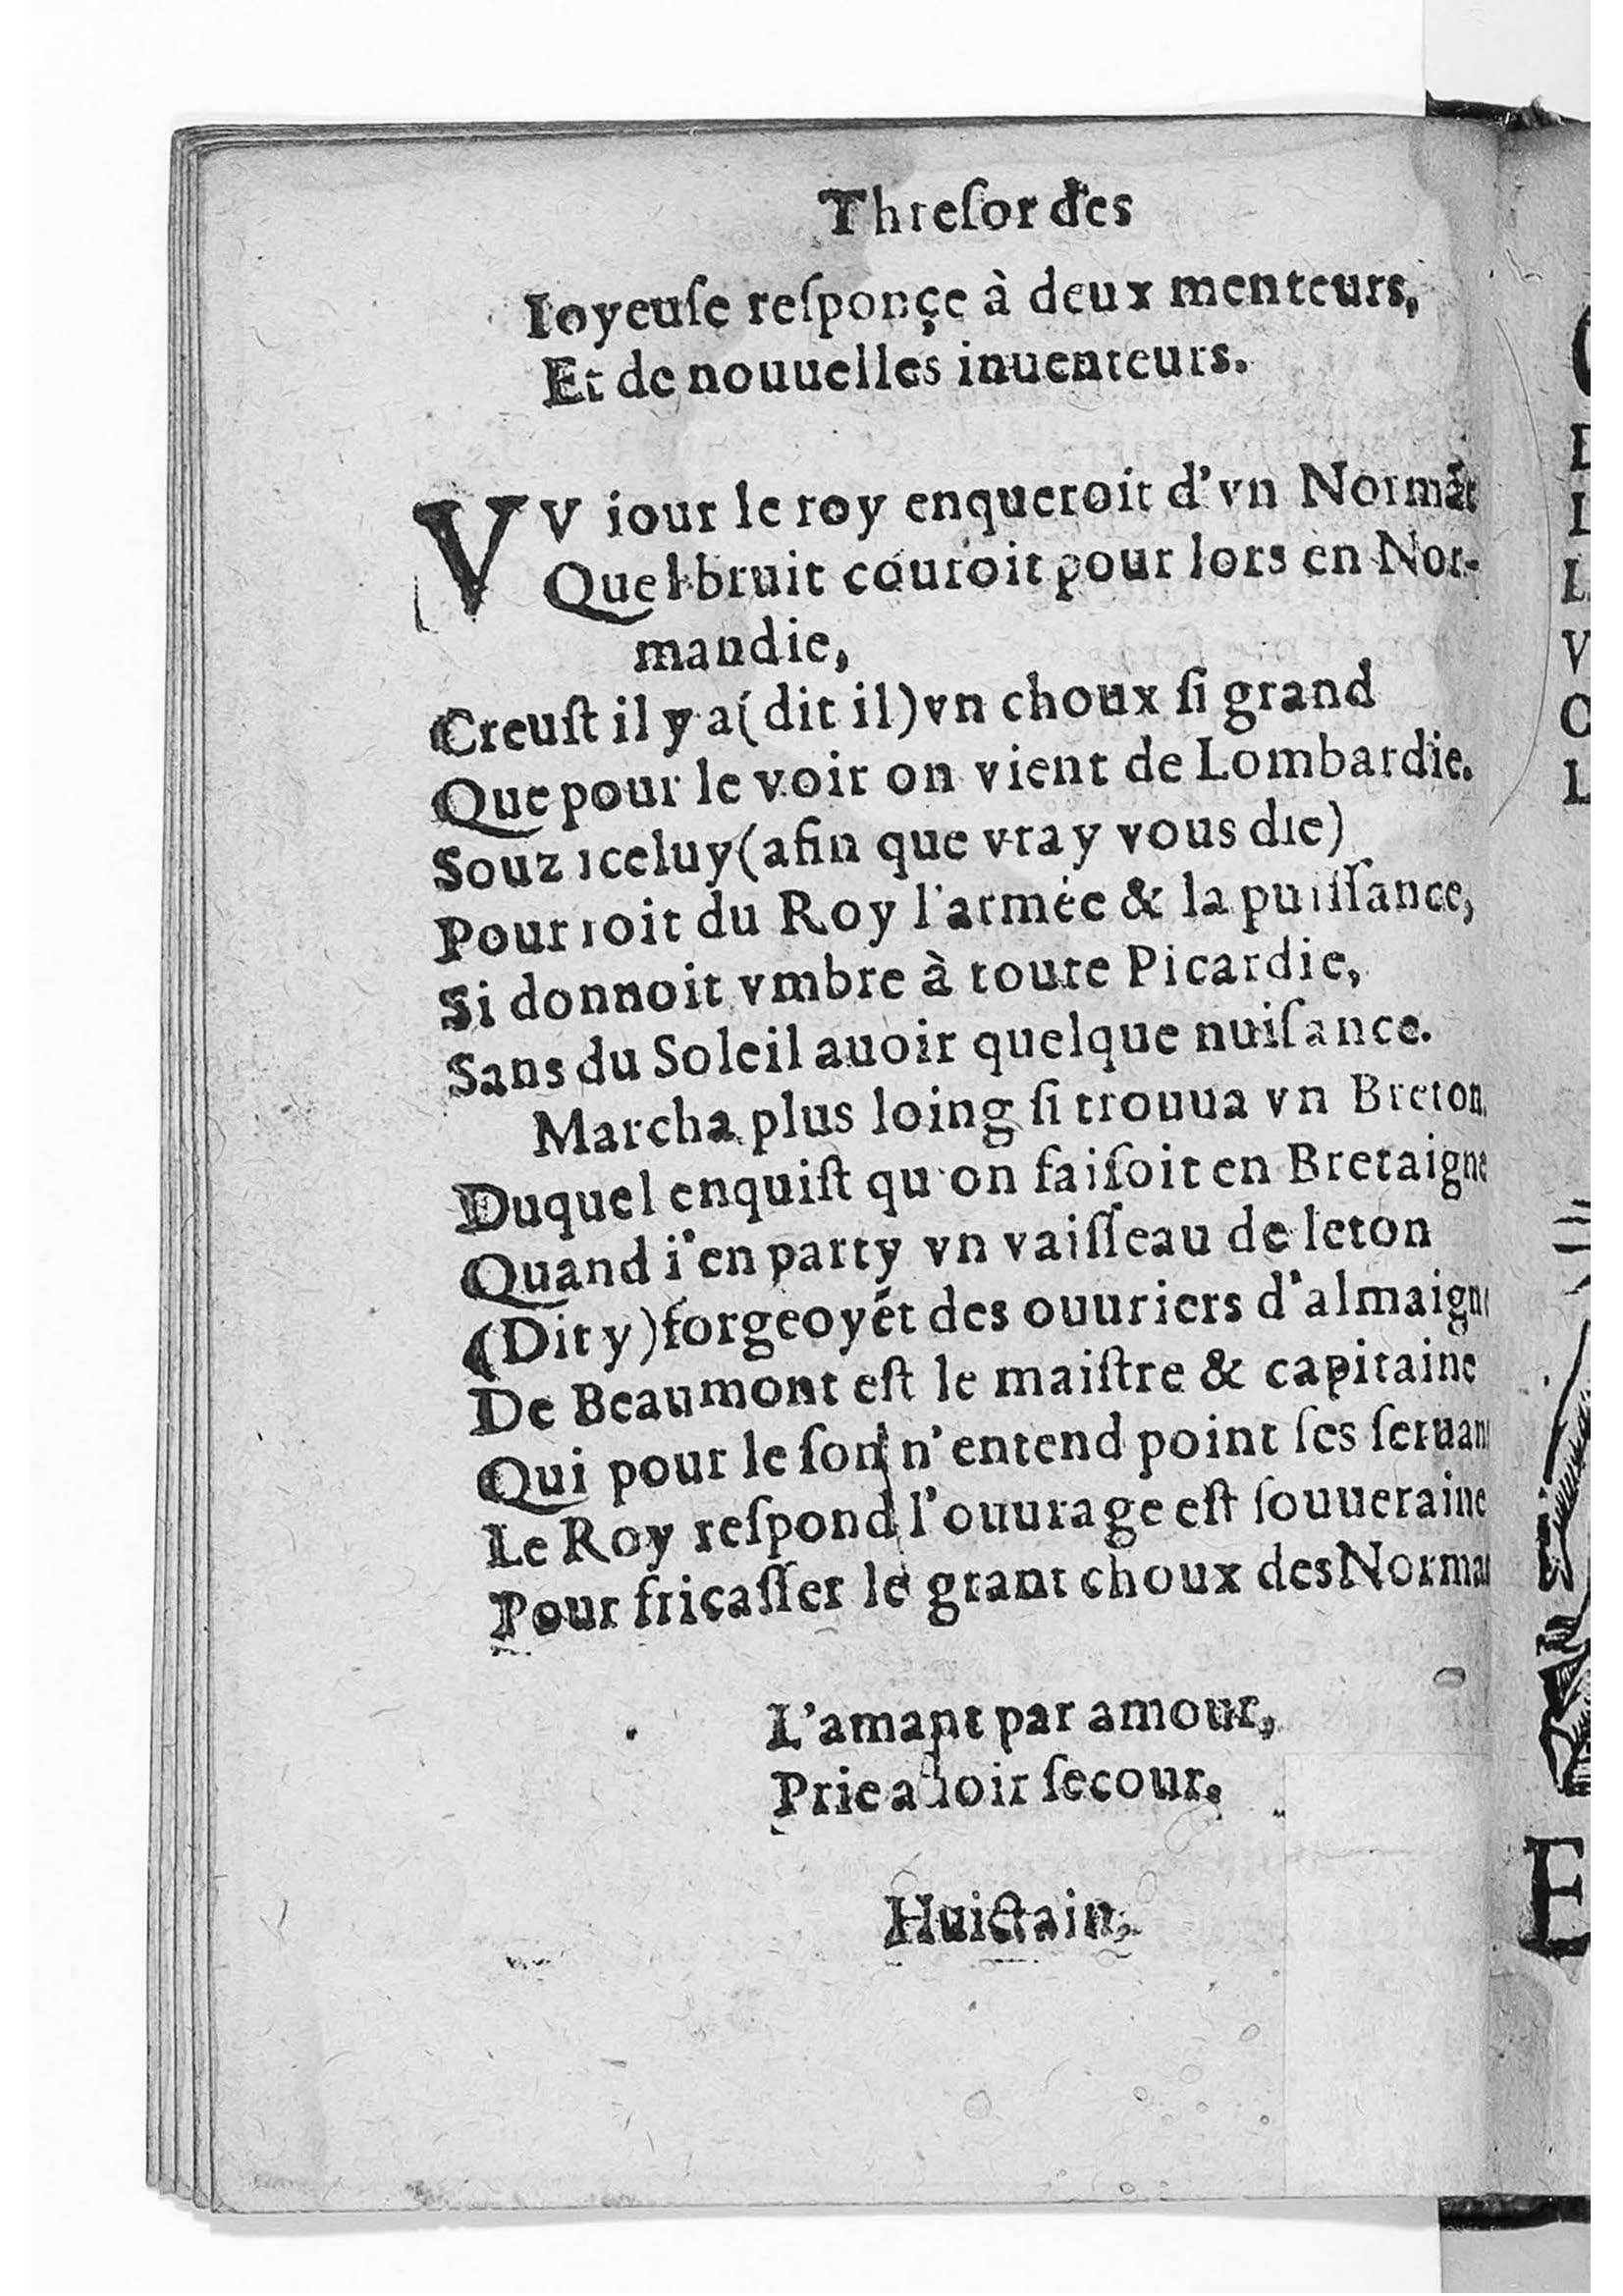 Threſor des
Ioyeuſe reſponçe à deux menteurs,
Et de nouuelles inuenteurs.
VV iour le roy enqueroit d'vn Normãt
Quel bruit couroit pour lors en Nor-
mandie,
Creuſt il y a (dit il) vn choux ſi grand
Que pour le voir on vient de Lombardie.
Souz iceluy (afin que vray vous die)
Pourroit du Roy l'armée & la puiſſance,
Si donnoit vmbre à toute Picardie,
Sans du Soleil auoir quelque nuiſance.
Marcha plus loing ſi trouua vn Breton,
Duquel enquiſt qu'on faiſoit en Bretaigne
Quand i'en party vn vaiſſeau de leton
(Dit y) forgeoyẽt des ouuriers d'almaigne
De Beaumont eſt le maiſtre & capitaine
Qui pour le ſon n'entend point ſes ſeruan
Le Roy reſpond l'ouurage eſt ſouueraine
Pour fricaſſer le grant choux des Norma
L'amant par amour,
Prie auoir ſecour.
Huictain,
E